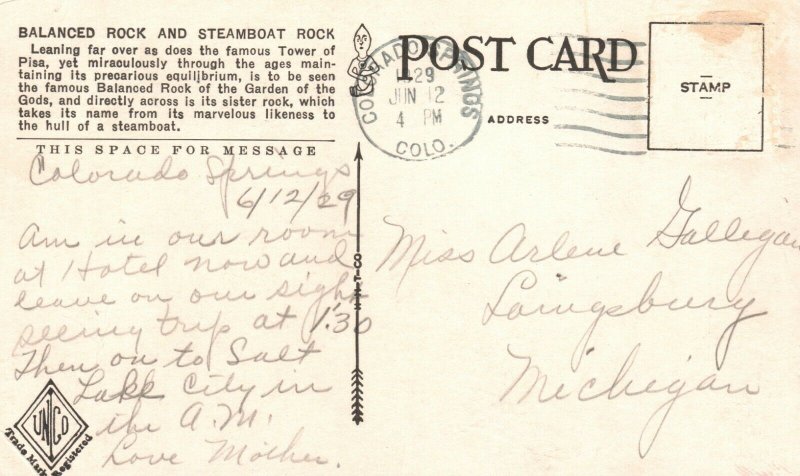 BALANCED ROCK AND STEAMBOAT ROCK
Leaning far over as does the famous Tower of
Pisa, yet miraculously through the ages main-
taining its precarious equilibrium, is to be seen
the famous Balanced Rock of the Garden of the
Gods, and directly across is its sister rock, which
takes its name from its marvelous likeness to
the hull of a steamboat.
THIS SPACE FOR MESSAGE
Colorado Springs
6/12/29
Am in our room
at Hotel now and
leave on our sight
seeing trip at 1:30
Then on to Salt
Lake City in
the A.M.
Love Mother.
UNCO
Trade Mark Registered
H-H-T-CO
COLORADO SPRINGS
1929
JUN 12
4 PM
COLO.
POST CARD
ADDRESS
STAMP
Miss Arlene Galligan
Laingsburg
Michigan